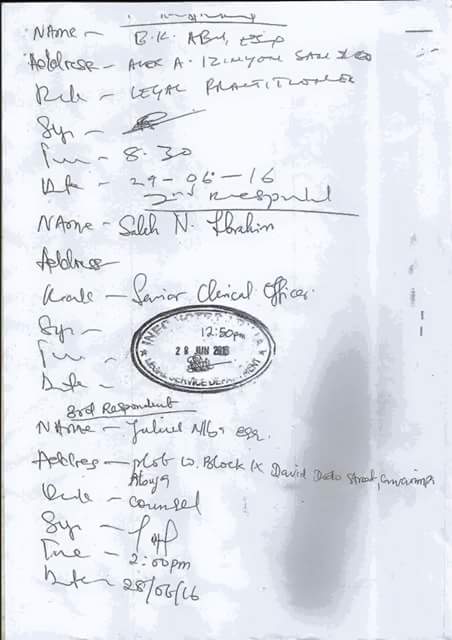 Name - B.K. ABU, ESQ
Address - ALEX A. IZINYON SAN & CO
Role - LEGAL PRACTITIONER
Sign -
Time - 8.30
Date - 29-06-16
2nd Respondent
Name - Saleh N. Ibrahim
Address -
Rank - Senior Clerical Officer.
Sign -
12:50pm
28 JUN
Time -
Date -
3rd Respondent
Name - Esq.
Address - plot Block David Street,
Abuja
counsel
Sign -
Time - 2:00pm
Date - 28/06/16